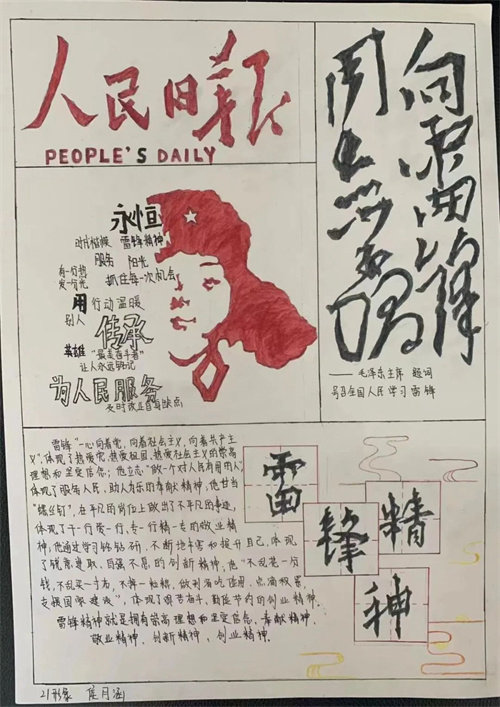 人民日报
PEOPLE'S DAILY
向雷锋同志学习
——毛泽东主席 题词
号召全国人民学习雷锋
永恒
时代楷模 雷锋精神
服务 阳光
有一分热
发一分光 抓住每一次机会
用 行动温暖
别人
传承
英雄 "最美奋斗者"
让人永远铭记
为人民服务
及时改正自身缺点
雷锋"一心向着党,向着社会主义,向着共产主
义",体现了热爱党、热爱祖国、热爱社会主义的崇高
理想和坚定信念;他立志"做一个对人民有用的人",
体现了服务人民,助人为乐的奉献精神,他甘当
"螺丝钉",在平凡的岗位上做出了不平凡的事迹,
体现了干一行爱一行,专一行精一专的敬业精
神;他通过学习钻研,不断地丰富和提升自己,体现
了锐意进取,自强不息的创新精神;他"不乱花一分
钱,不乱买一寸布,不掉一粒粮,做到省吃俭用,点滴积累,
支援国家建设",体现了艰苦奋斗,勤俭节约的创业精神.
雷锋精神就是拥有崇高理想和坚定信念、奉献精神、
敬业精神、创新精神、创业精神.
雷
锋
精
神
21形象 月涵